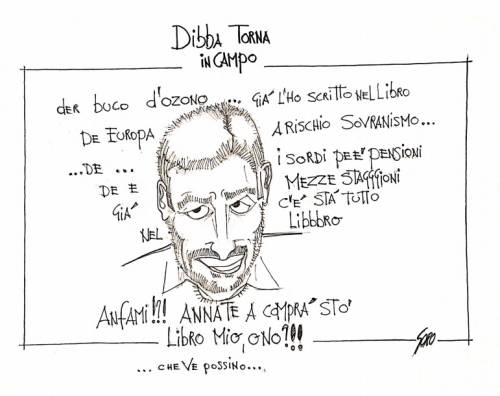 Dibba Torna
in Campo
der buco d'ozono ... già l'ho scritto nel libro
De Europa
a rischio sovranismo...
...de ...
i sordi pe e' pensioni
de e
mezze staggioni
già
c'è sta' tutto
nel
libbbro
Anfami!?! Annate a comprà sto'
libro mio, o no?!!
... che ve possino....